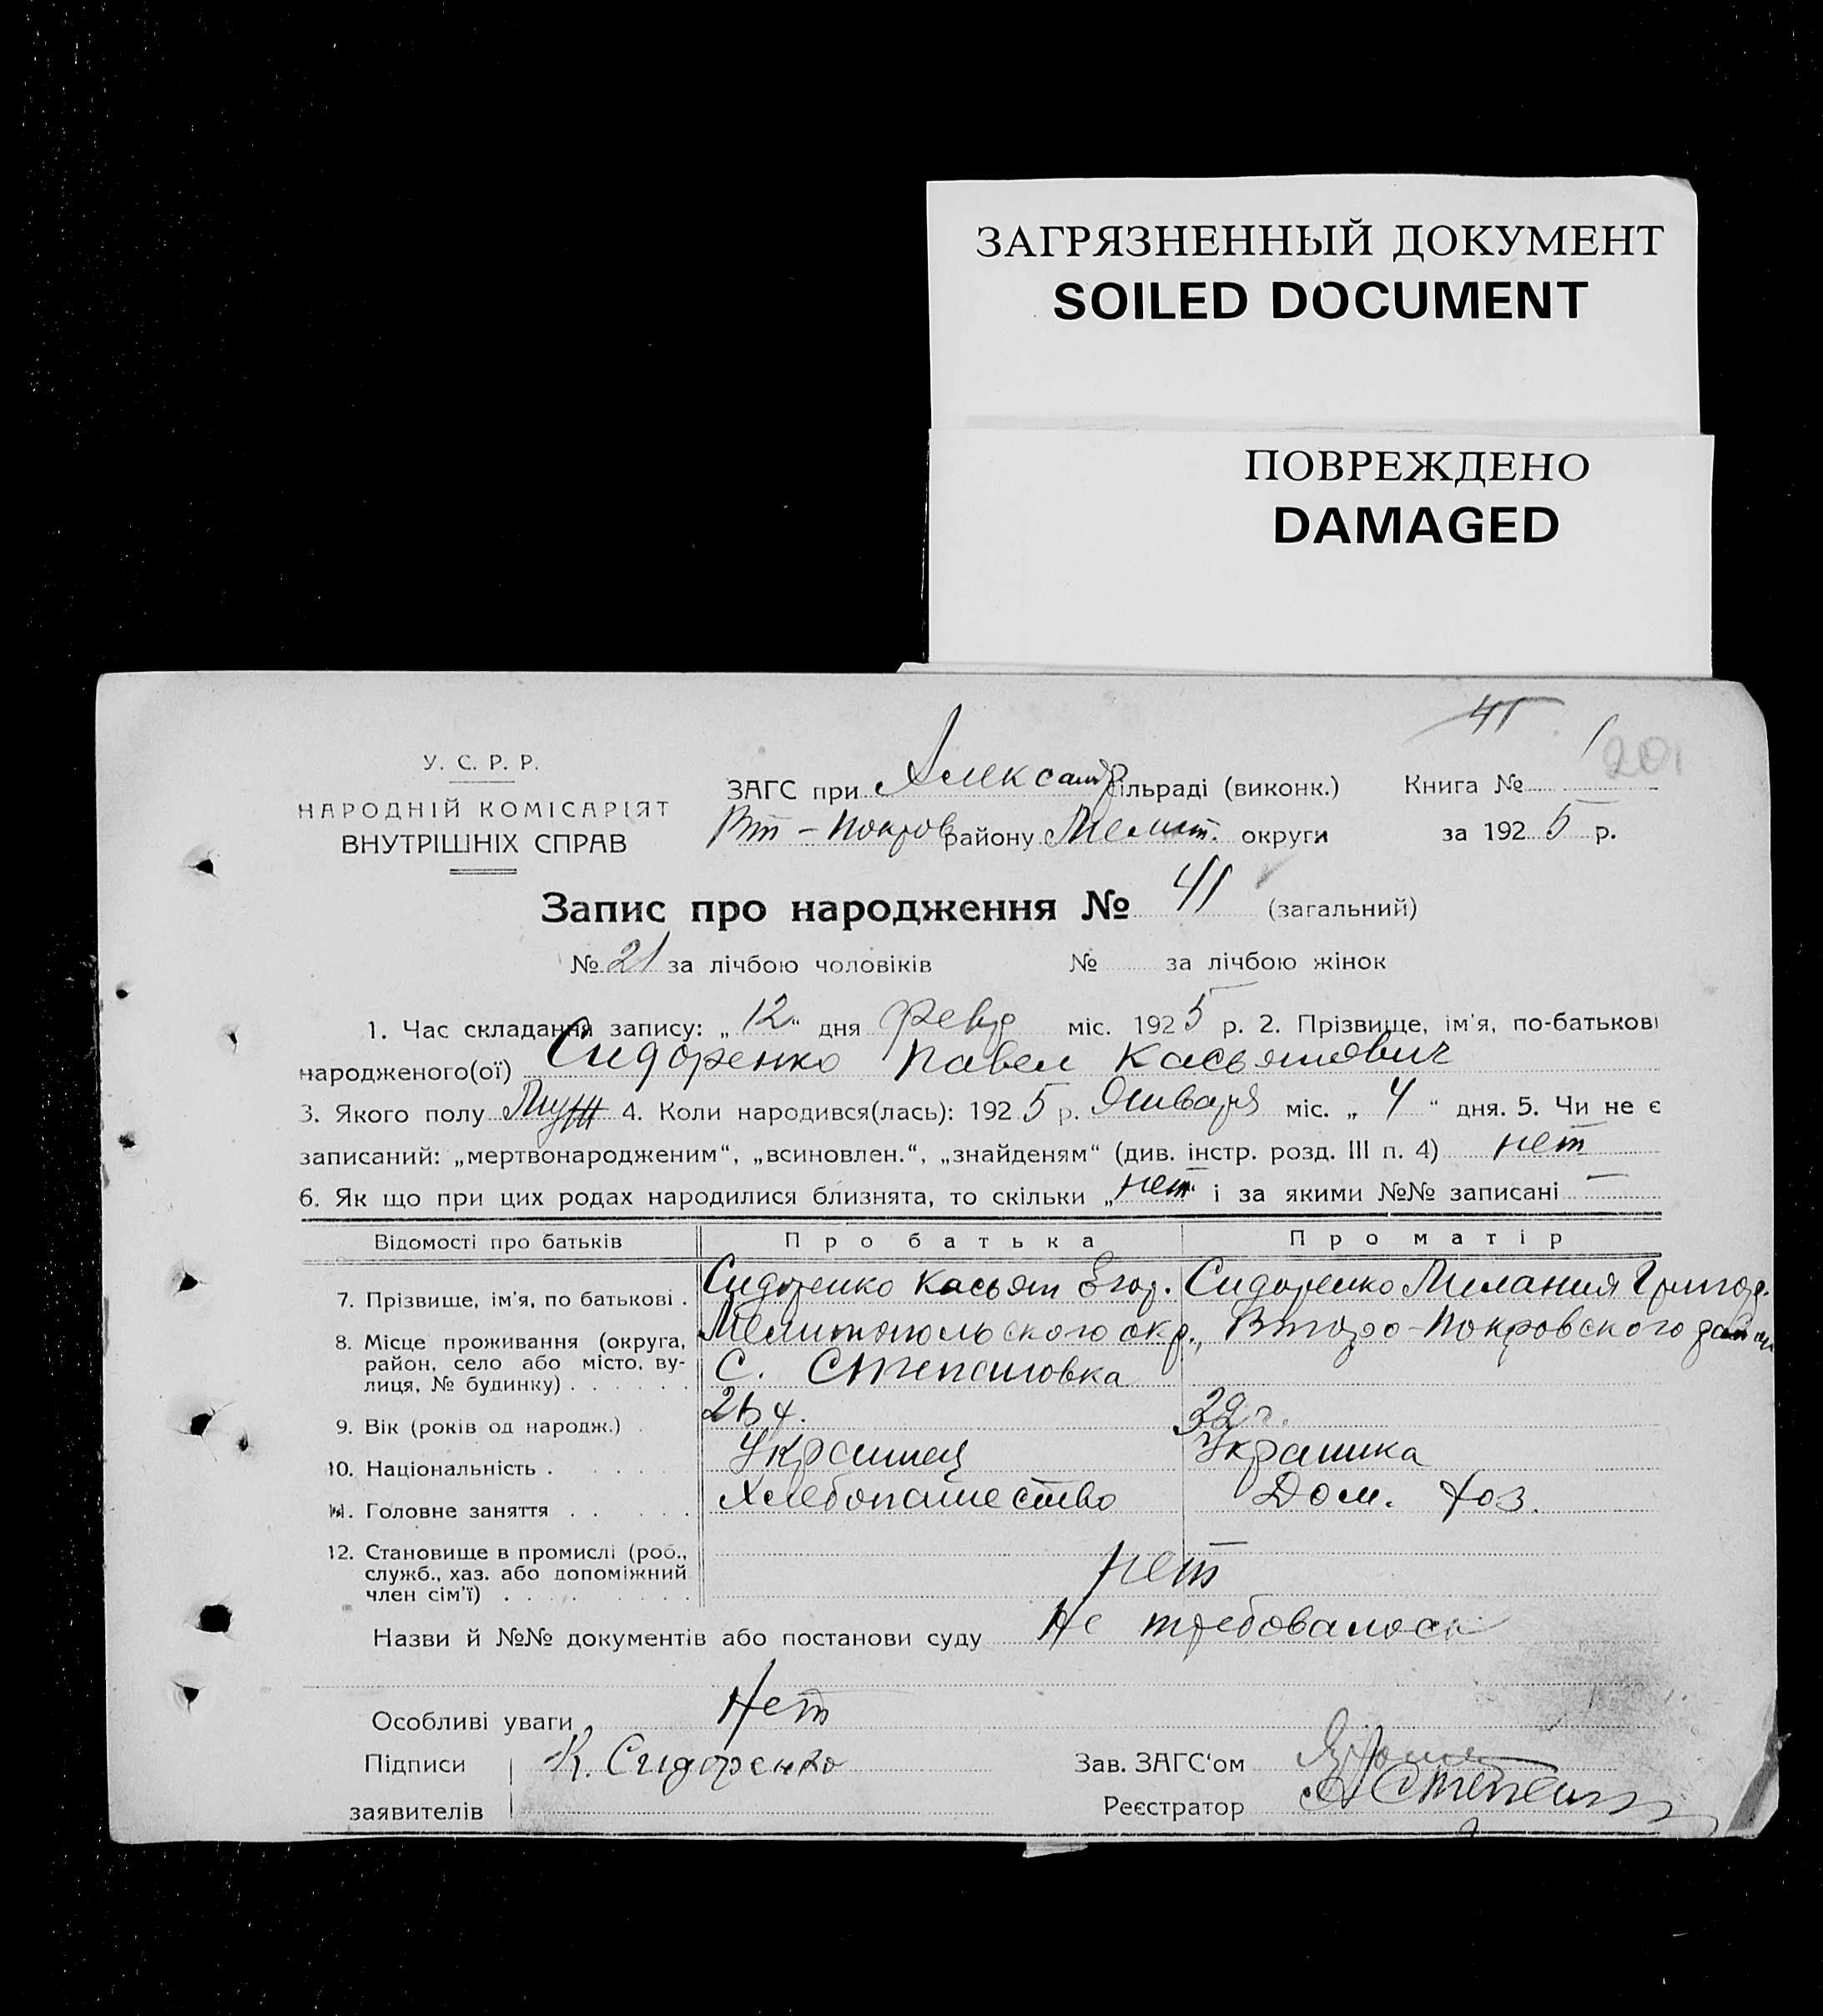 ЗАГРЯЗНЕННЫЙ ДОКУМЕНТ
SOILED DOCUMENT
ПОВРЕЖДЕНО
DAMAGED
41
201
У. С. Р. Р.
НАРОДНІЙ КОМІСАРІЯТ
ВНУТРІШНІХ СПРАВ
ЗАГС при Александр сільраді (виконк.) Книга №
Вт - Покров району Мелит. округи за 1925 р.
Запис про народження № 41 (загальний)
№ 21 за лічбою чоловіків № за лічбою жінок
1. Час складання запису: „12“ дня февр міс. 1925 р. 2. Прізвище, ім'я, по-батькові
народженого(ої) Сидоренко Павел Касьянович
3. Якого полу Муж 4. Коли народився(лась): 1925 р. Января міс. „4“ дня. 5. Чи не є
записаний: „мертвонародженим“, „всиновлен.“, „знайденям“ (див. інстр. розд. III п. 4) нет
6. Як що при цих родах народилися близнята, то скільки „нет“ і за якими №№ записані —
Відомості про батьків Про батька Про матір
7. Прізвище, ім'я, по батькові . Сидоренко Касьян Егор. Сидоренко Мелания Григор.
8. Місце проживання (округа, район, село або місто, вулиця, № будинку) . . . . . . Мелитопольского окр., Второ-Покровского район
С. Степановка
9. Вік (років од народж.) .
10. Національність . . . . . Украинец Украинка
11. Головне заняття . . . . Хлебопашество Дом. хоз.
12. Становище в промислі (роб., служб., хаз. або допоміжний член сім'ї) . . . . . . . . нет
Назви й №№ документів або постанови суду Не требовалось
Особливі уваги Нет
Підписи К. Сидоренко Зав. ЗАГС'ом
заявителів Реєстратор